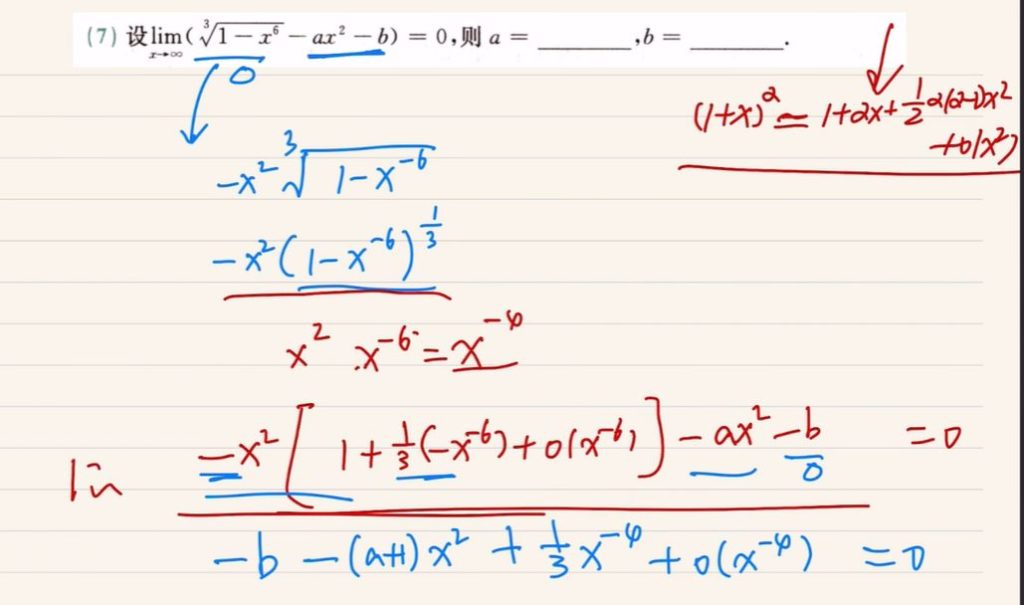 (7) 设lim(∛1-x⁶ - ax² - b) = 0,则 a = ________,b = ________.
x→∞
0
(1+x)^α ≃ 1+αx+½α(α-1)x²
+o(x²)
-x² ∛1-x⁻⁶
-x²(1-x⁻⁶)^⅓
x² .x⁻⁶=x⁻⁴
lim -x²[1+⅓(-x⁻⁶)+o(x⁻⁶)] -ax² -b =0
0
-b -(a+1)x² +⅓x⁻⁴ +o(x⁻⁴) =0